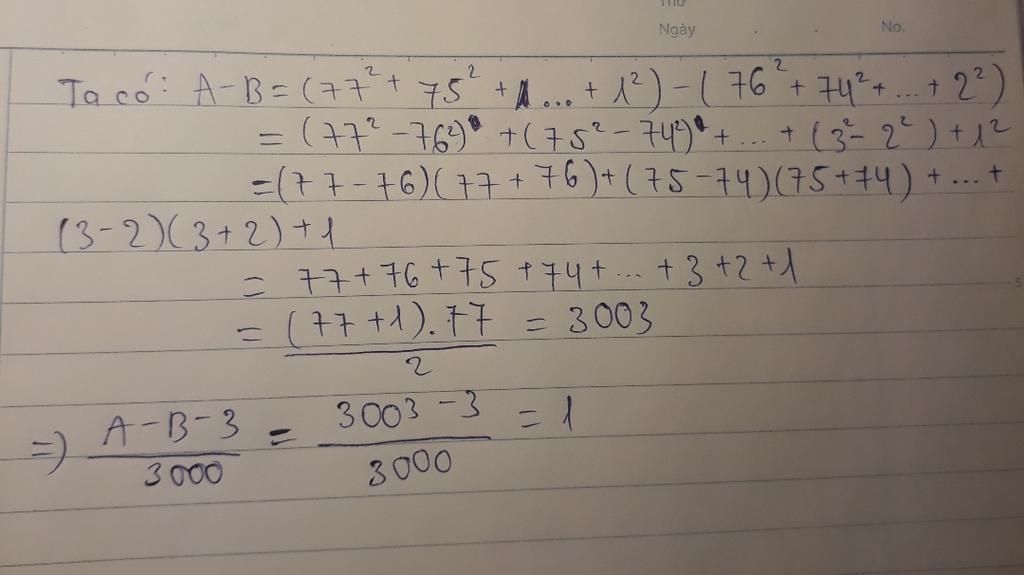 Thứ
Ngày . . No.
Ta có: A-B = (77² + 75² + ... + 1²) - (76² + 74² + ... + 2²)
= (77² - 76²) + (75² - 74²) + ... + (3² - 2²) + 1²
= (77 - 76)(77 + 76) + (75 - 74)(75 + 74) + ... +
(3-2)(3+2) + 1
= 77 + 76 + 75 + 74 + ... + 3 + 2 + 1
= (77 + 1).77 / 2 = 3003
=> A - B - 3 / 3000 = 3003 - 3 / 3000 = 1